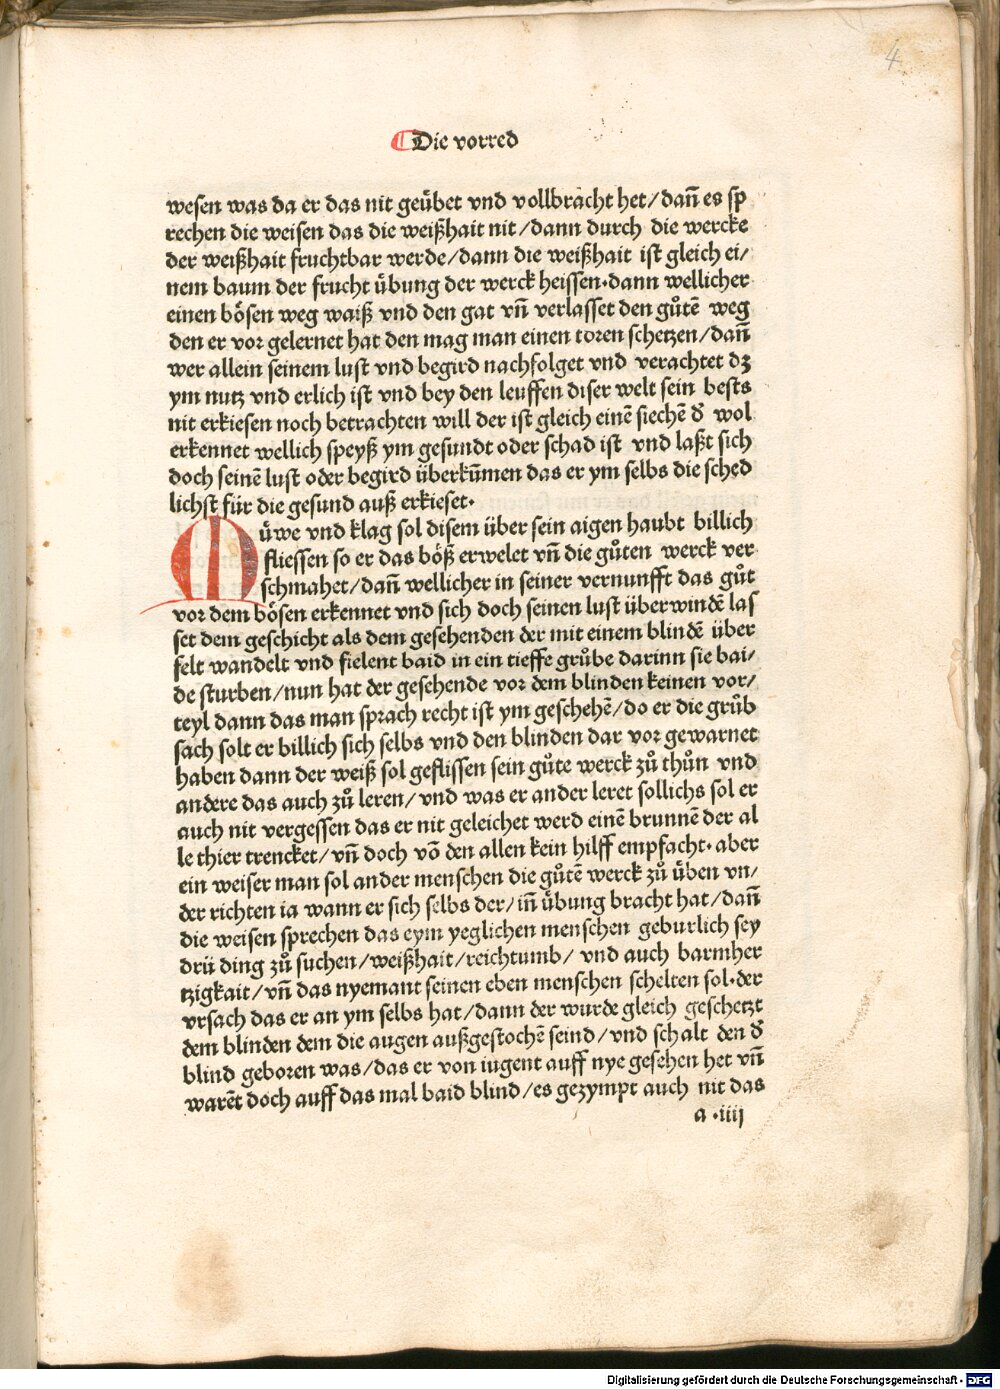 4
Die vorred
wesen was da er das nit geübet vnd vollbracht het/dañ es sp
rechen die weisen das die weißhait nit/dann durch die wercke
der weißhait fruchtbar werde/dann die weißhait ist gleich ei/
nem baum der frucht übung der werck heissen·dann wellicher
einen bösen weg waiß vnd den gat vñ verlasset den gůtē weg
den er vor gelernet hat den mag man einen toren schetzen/dañ
wer allein seinem lust vnd begird nachfolget vnd verachtet dz
ym nutz vnd erlich ist vnd bey den leuffen diser welt sein bests
nit erkiesen noch betrachten will der ist gleich einē siechē d̕ wol
erkennet wellich speyß ym gesundt oder schad ist vnd laßt sich
doch seinē lust oder begird überkūmen das er ym selbs die sched
lichst für die gesund auß erkieset·
Müwe vnd klag sol disem über sein aigen haubt billich
fliessen so er das böß erwelet vñ die gůten werck ver
schmahet/dañ wellicher in seiner vernunfft das gůt
vor dem bösen erkennet vnd sich doch seinen lust überwindē las
set dem geschicht als dem gesehenden der mit einem blindē über
felt wandelt vnd fielent baid in ein tieffe grůbe darinn sie bai/
de sturben/nun hat der gesehende vor dem blinden keinen vor/
teyl dann das man sprach recht ist ym geschehē/do er die grůb
sach solt er billich sich selbs vnd den blinden dar vor gewarnet
haben dann der weiß sol geflissen sein gůte werck zů thůn vnd
andere das auch zů leren/vnd was er ander leret sollichs sol er
auch nit vergessen das er nit geleichet werd einē brunnē der al
le thier trencket/vñ doch võ den allen kein hilff empfacht·aber
ein weiser man sol ander menschen die gůtē werck zů üben vn/
der richten ia wann er sich selbs der/iñ übung bracht hat/dañ
die weisen sprechen das eym yeglichen menschen geburlich sey
drü ding zů suchen/weißhait/reichtumb/vnd auch barmher
tzigkait/vñ das nyemant seinen eben menschen schelten sol·der
vrsach das er an ym selbs hat/dann der wurde gleich geschetzt
dem blinden dem die augen außgestochē seind/vnd schalt den d̕
blind geboren was/das er von iugent auff nye gesehen het vñ
warēt doch auff das mal baid blind/es gezympt auch nit das
a·iiij
Digitalisierung gefördert durch die Deutsche Forschungsgemeinschaft - DFG